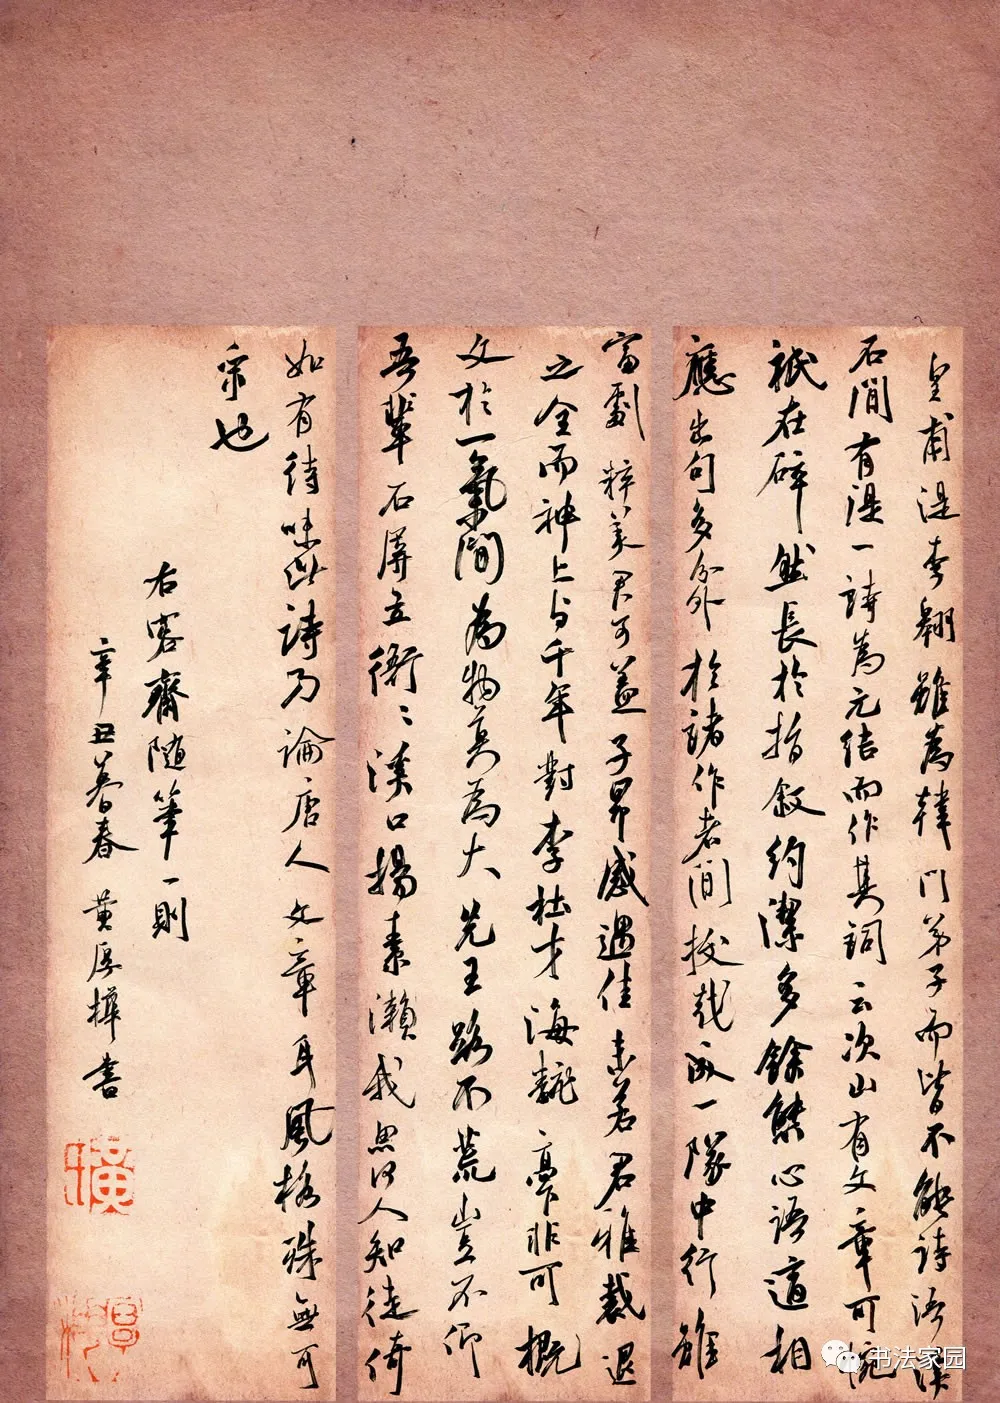 皇甫湜李翱雖為韓門弟子而皆不能詩浯溪
石間有湜一詩為元結而作其詞云次山有文章可惋
祇在碎然長於指敘約潔多餘態心語適相
應出句多分外於諸作者間拔戟成一隊中行雖
富劇粹美君可蓋子昂感遇佳未若君雅裁退
之全而神上与千年對李杜才海翻高下非可概
文於一氣間為物莫為大先王路不荒豈不仰
吾輩石屏立衙衙溪口揚素瀨我思何人知徒倚
如有待味此詩乃論唐人文章耳風格殊無可
采也
右容齋隨筆一則
辛丑暮春 黄厚樺書
书法家园